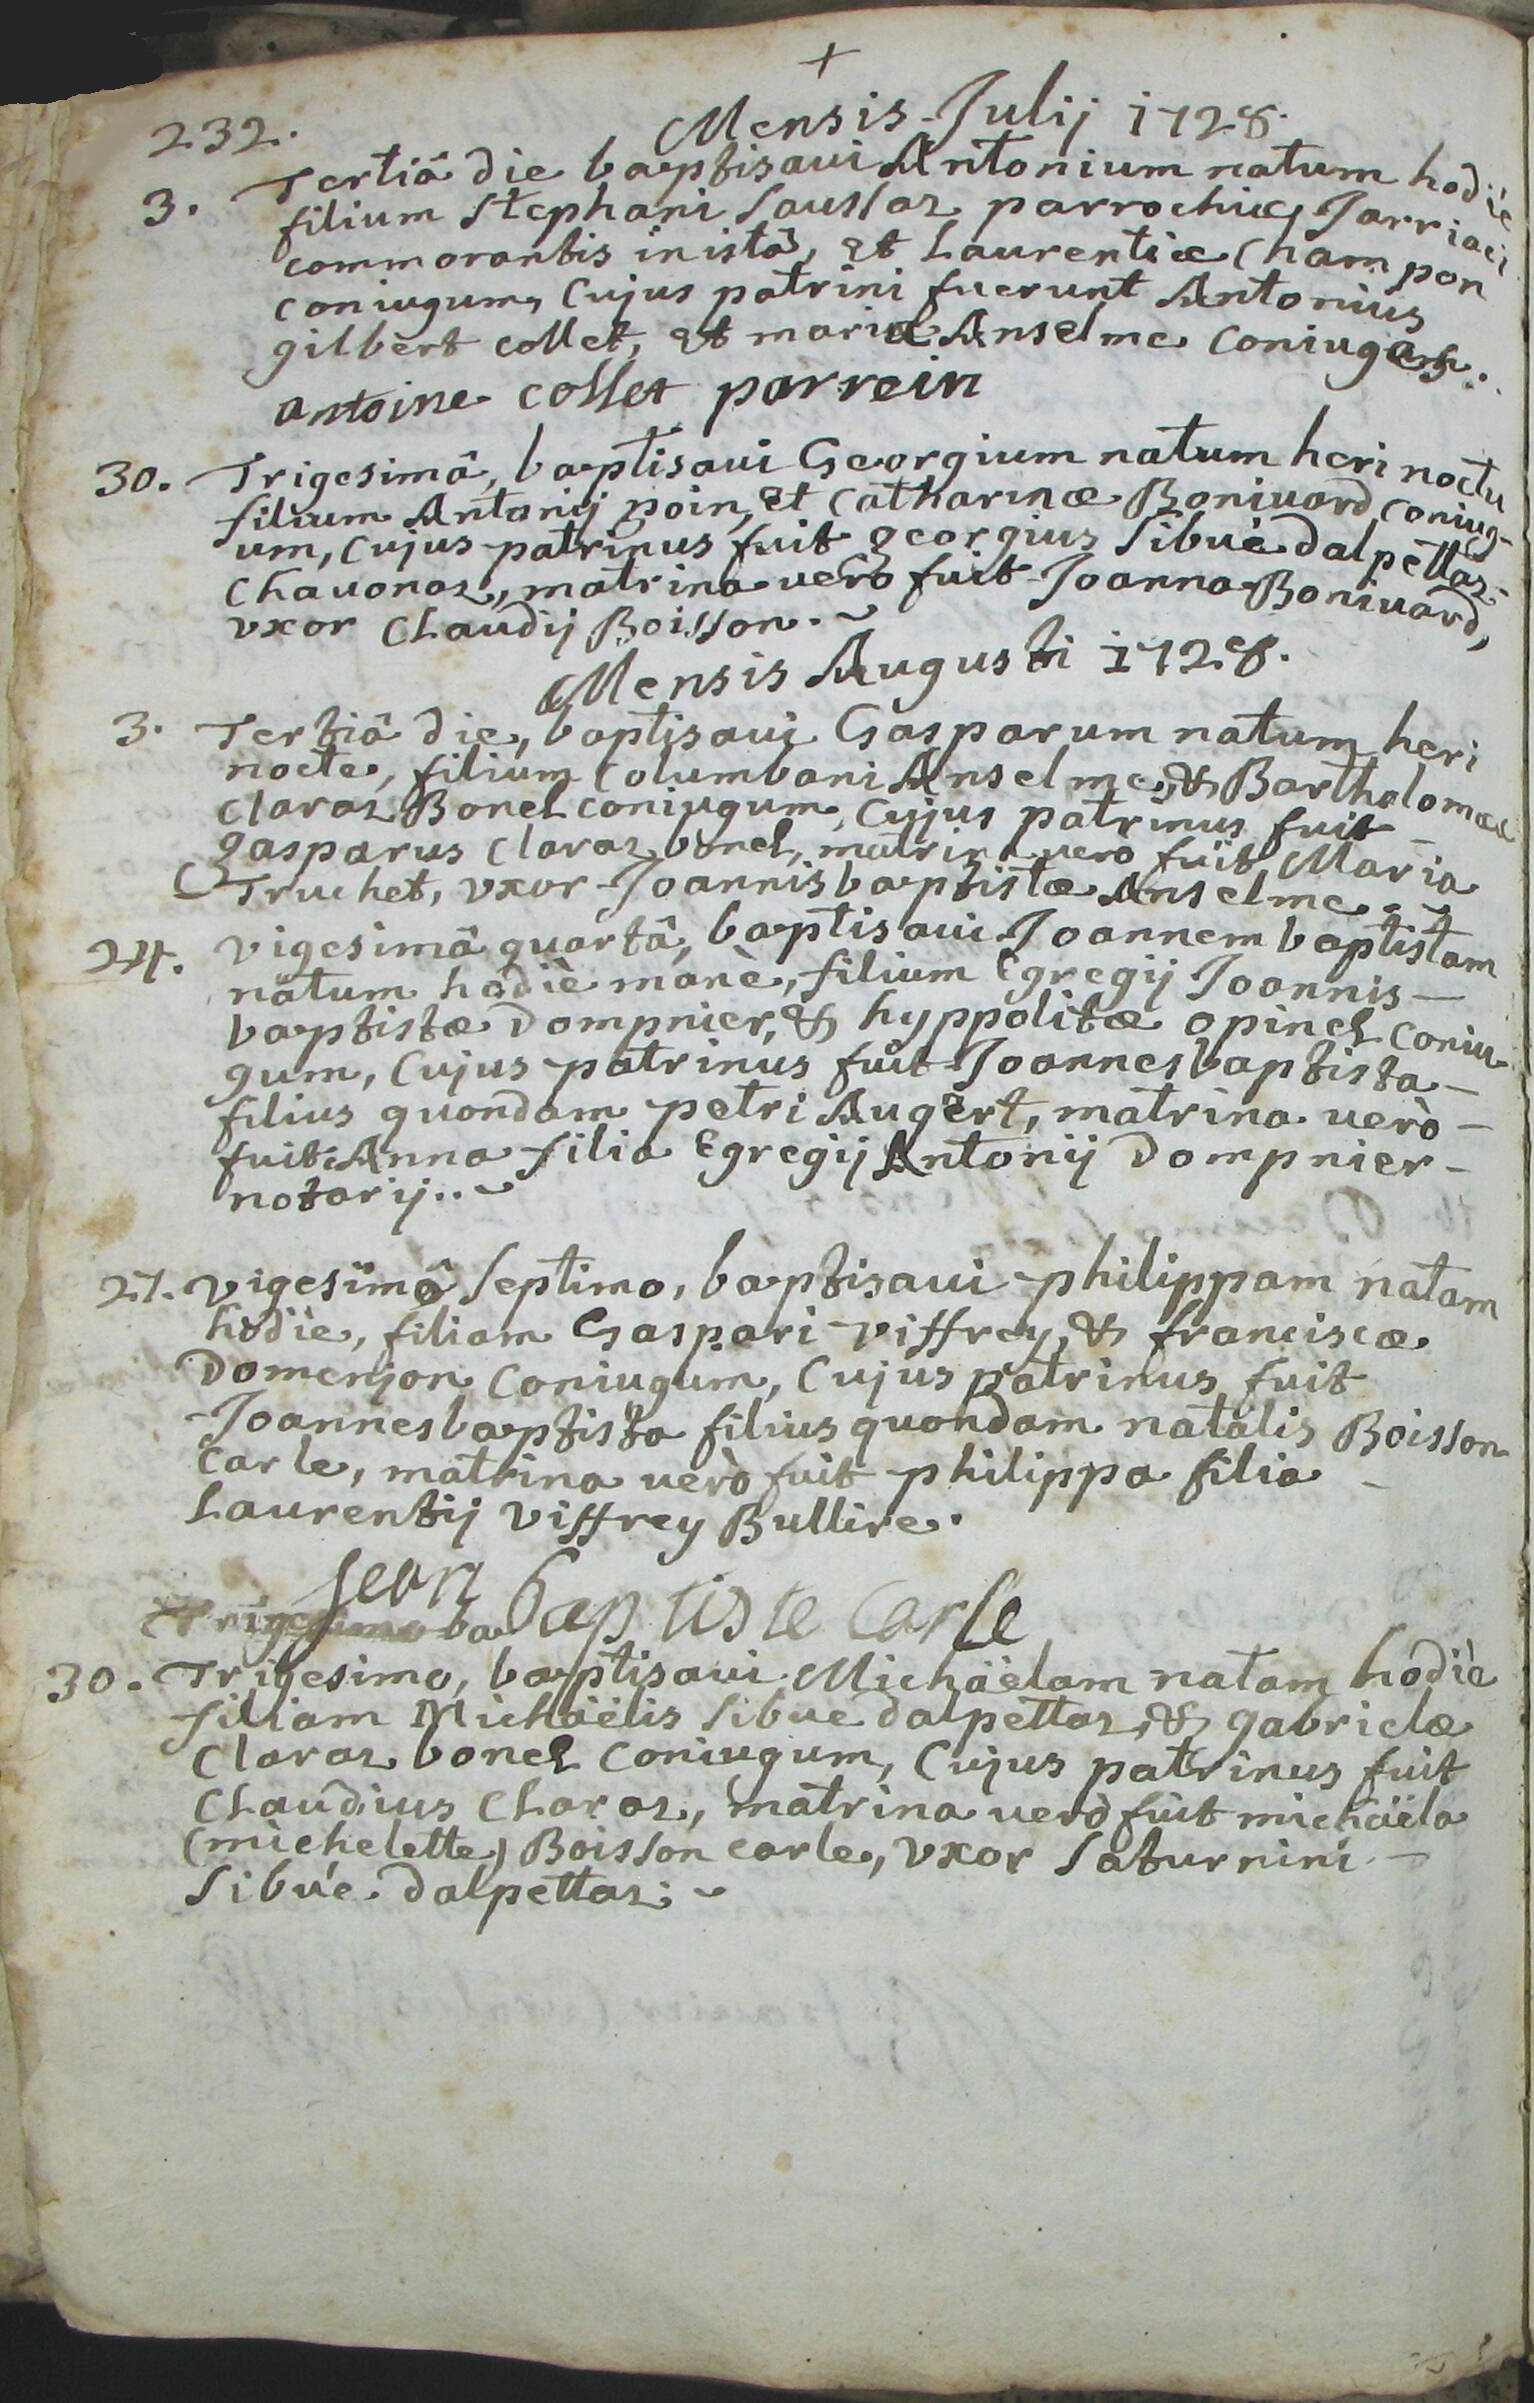 +
232.
Mensis Julij 1728.
3. Tertiâ die baptisaui Antonium natum hodiè
filium stephani saussaz parrochiæ Jarriaci
commorantis in istâ, et Laurentiæ Champon
coniugum, Cujus patrini fuerunt Antonius
gilbert collet, et maria Anselme coniuges.
antoine collet parrein
30. Trigesimâ, baptisaui Georgium natum heri noctu
filium Antonij poin, et Catharinæ Boniuard coniug-
um, Cujus patrinus fuit georgius Sibué dalpettaz-
Chauonaz, matrina verò fuit Joanna Boniuard,
vxor Claudij Boisson.
Mensis Augusti 1728.
3. Tertiâ die, baptisaui Gasparum natum heri
nocte, filium Columbani Anselme, & Bartholomææ
claraz Bonel coniugum, Cujus patrinus fuit
gasparus claraz bonel, matrina vero fuit Maria
Truchet, vxor Joannisbaptistæ Anselme.
24. vigesimâ quartâ, baptisaui Joannem baptistam
natum hodiè manè, filium Egregij Joannis-
baptistæ Dompnier, & hyppolitæ opinel coniu-
gum, Cujus patrinus fuit Joannesbaptista-
filius quondam petri Augert, matrina verò-
fuit Anna filia Egregij Antonij Dompnier-
notarij..
27. vigesimô septimo, baptisaui philippam natam
hodie, filiam Gaspari viffrey, & franciscæ
Domenjon coniugum, Cujus patrinus fuit
Joannesbaptista filius quondam natalis Boisson
carle, matrina verò fuit philippa filia-
Laurentij viffrey Bullire.
Jean baptiste carle
Trigesimo ba
30. Trigesimo, baptisaui Michäelam natam hodiè
filiam Michäelis Sibue dalpettaz, & gabrielæ
Claraz bonel coniugum, Cujus patrinus fuit
Claudius Claraz, matrina verò fuit michäela
(michelette) Boisson carle, vxor Saturnini-
Sibué dalpettaz.